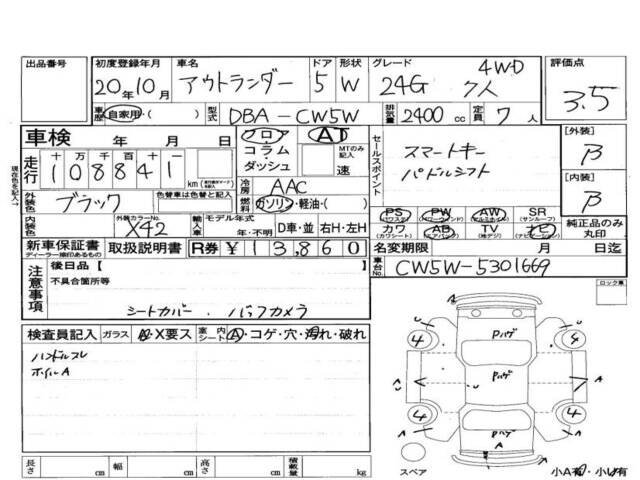 出品番号
初度登録年月
20年10月
車名
アウトランダー
ドア
5
形状
W
グレード
24G 7人 4WD
評価点
3.5
車歴
自家用・( )
型式
DBA-CW5W
排気量
2400 cc
定員
7人
車検 年 月 日
フロア
コラム・
ダッシュ
AT
MTのみ記入
速
セールスポイント
スマートキー
パドルシフト
[外装]
B
[内装]
B
現在色を記入→
走行
十万千百十一
108841
km
冷房
AAC
燃料
ガソリン・軽油・( )
外装色
ブラック
色替車は色替と記入
内装色
外装カラーNo.
X42
輸入車
モデル年式
年・不明
D車・並
右H・左H
PS (パワステ)
PW (パワーウィンドウ)
AW (アルミホイル)
SR (サンルーフ)
カワ (カワシート)
AB (エアバッグ)
TV (地デジ)
ナビ (ナビゲーション)
純正品のみ
丸印
新車保証書
ディーラー捺印あるもの
取扱説明書
R券 ¥13,860
名変期限 月 日迄
注意事項
後日品【
不具合箇所等
シートカバー、バックカメラ
車台No.
CW5W-5301669
ロック車
検査員記入
ガラス
A・X要ス
室内シート
A・コゲ・穴・汚れ・破れ
ハンドルスレ
ホイルA
Pハゲ
Pハゲ
Pハゲ
4
4
4
4
A
A
A
スペア
小A有・小U有
長さ cm
幅 cm
高さ cm
積載量 kg